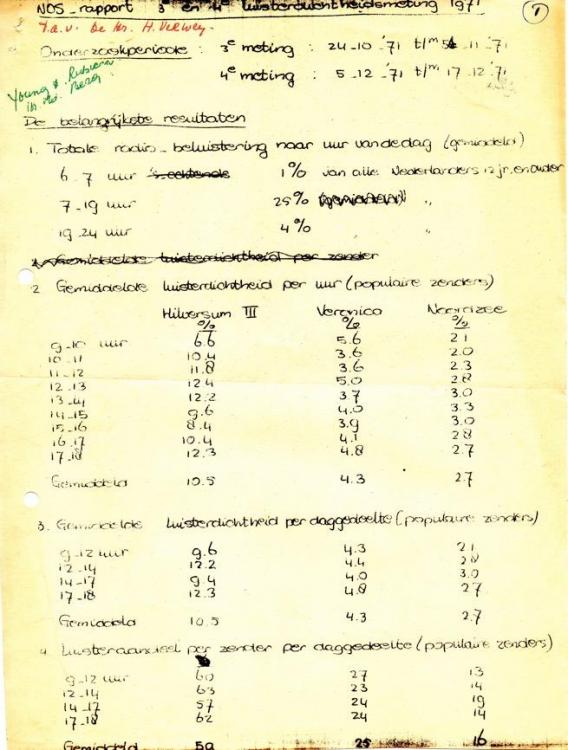 NOS-rapport 3e en 4e luisterdichtheidsmeting 1971
1
T.a.v. De Hr. H. Verwey.
Onderzoekperiode : 3e meting : 24-10 '71 t/m 11 '71
4e meting : 5-12 '71 t/m 17-12 '71
Young & Rubicam
De belangrijkste resultaten
1. Totale radio-beluistering naar uur van de dag (gemiddeld)
6-7 uur 's ochtends 1% van alle Nederlanders 12 jr. en ouder
7-19 uur 25% (gemiddeld) "
19-24 uur 4% "
2. Gemiddelde luisterdichtheid per zender
2 Gemiddelde luisterdichtheid per uur (populaire zenders)
Hilversum III Veronica Noordzee
% % %
9-10 uur 6.6 5.6 2.1
10-11 10.4 3.6 2.0
11-12 11.8 3.6 2.3
12-13 12.4 5.0 2.8
13-14 12.2 3.7 3.0
14-15 9.6 4.0 3.3
15-16 8.4 3.9 3.0
16-17 10.4 4.1 2.8
17-18 12.3 4.8 2.7
Gemiddeld 10.5 4.3 2.7
3. Gemiddelde luisterdichtheid per daggedeelte (populaire zenders)
9-12 uur 9.6 4.3 2.1
12-14 12.2 4.4 2.8
14-17 9.4 4.0 3.0
17-18 12.3 4.8 2.7
Gemiddeld 10.5 4.3 2.7
4 Luisteraandeel per zender per daggedeelte (populaire zenders)
9-12 uur 60 27 13
12-14 63 23 14
14-17 57 24 19
17-18 62 24 14
Gemiddeld 59 25 16